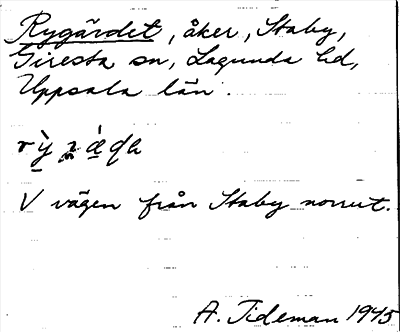 Rygärdet, åker, Staby,
Giresta sn, Lagunda hd,
Uppsala län.
V vägen från Staby norrut.
A. Tideman 1945